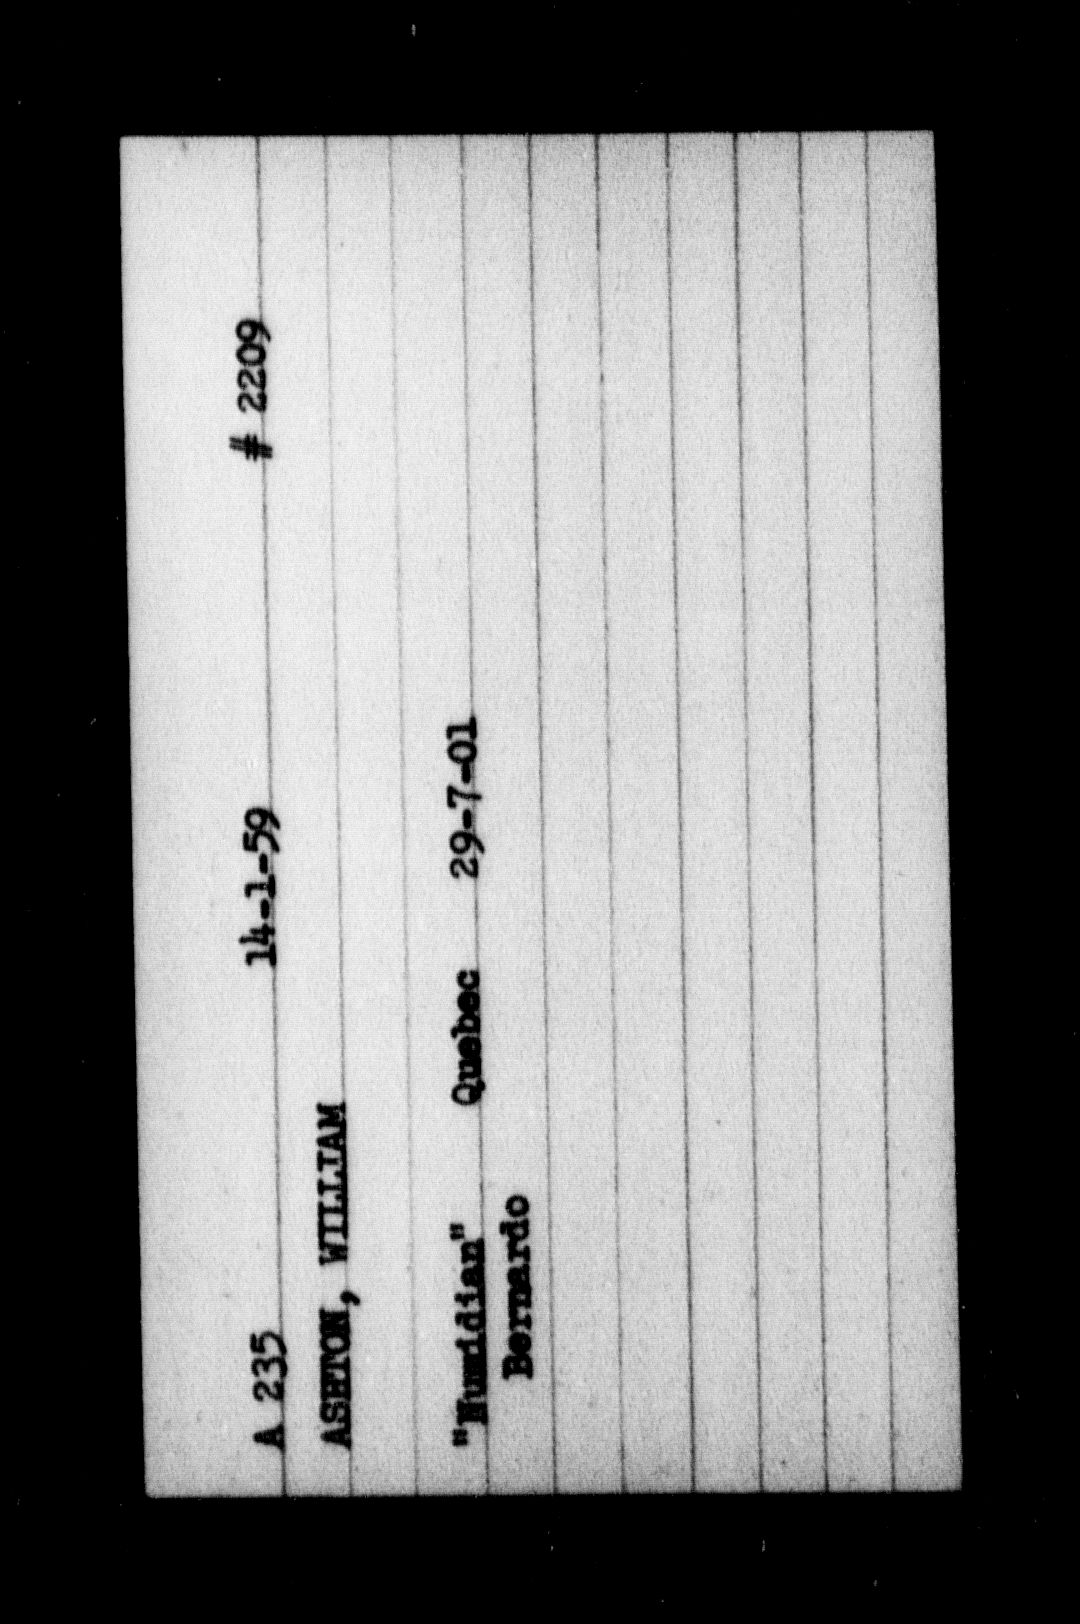 A 235 14-1-59 # 2209
ASHTON, WILLIAM
"Numidian" Quebec 29-7-01
Bernardo